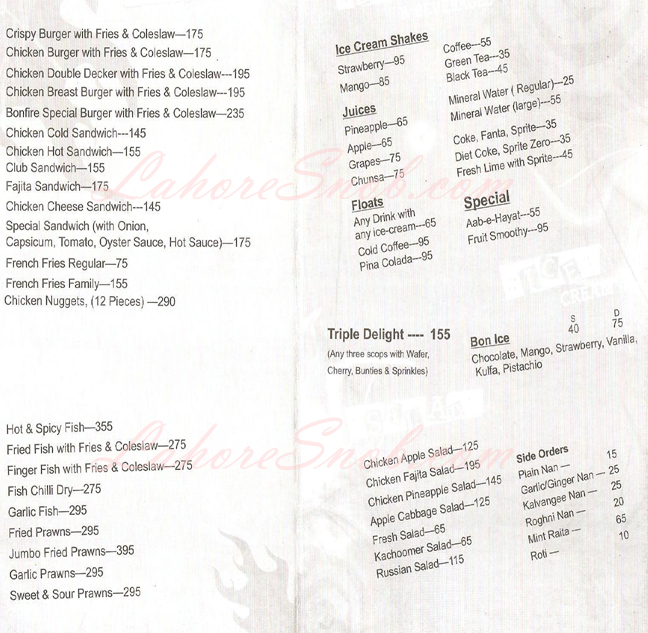 Crispy Burger with Fries & Coleslaw—175
Chicken Burger with Fries & Coleslaw—175
Chicken Double Decker with Fries & Coleslaw---195
Chicken Breast Burger with Fries & Coleslaw---195
Bonfire Special Burger with Fries & Coleslaw—235
Chicken Cold Sandwich---145
Chicken Hot Sandwich—155
Club Sandwich—155
Fajita Sandwich—175
Chicken Cheese Sandwich---145
Special Sandwich (with Onion,
Capsicum, Tomato, Oyster Sauce, Hot Sauce)—175
French Fries Regular—75
French Fries Family—155
Chicken Nuggets, (12 Pieces) —290
Hot & Spicy Fish—355
Fried Fish with Fries & Coleslaw—275
Finger Fish with Fries & Coleslaw—275
Fish Chilli Dry—275
Garlic Fish—295
Fried Prawns—295
Jumbo Fried Prawns—395
Garlic Prawns—295
Sweet & Sour Prawns—295
Ice Cream Shakes
Strawberry—95
Mango—85
Juices
Pineapple—65
Apple—65
Grapes—75
Chunsa—75
Floats
Any Drink with
any ice-cream—65
Cold Coffee—95
Pina Colada—95
Coffee—55
Green Tea---35
Black Tea---45
Mineral Water ( Regular)—25
Mineral Water (large)---55
Coke, Fanta, Sprite—35
Diet Coke, Sprite Zero---35
Fresh Lime with Sprite---45
Special
Aab-e-Hayat---55
Fruit Smoothy---95
ICE
CREAM
Triple Delight ---- 155
(Any three scops with Wafer,
Cherry, Bunties & Sprinkles)
Bon Ice
S D
40 75
Chocolate, Mango, Strawberry, Vanilla,
Kulfa, Pistachio
Chicken Apple Salad—125
Chicken Fajita Salad—195
Chicken Pineapple Salad—145
Apple Cabbage Salad—125
Fresh Salad—65
Kachoomer Salad—65
Russian Salad—115
Side Orders
Plain Nan — 15
Garlic/Ginger Nan — 25
Kalvangee Nan — 25
Roghni Nan — 20
Mint Raita — 65
Roti — 10
LahoreSnob.com
LahoreSnob.com